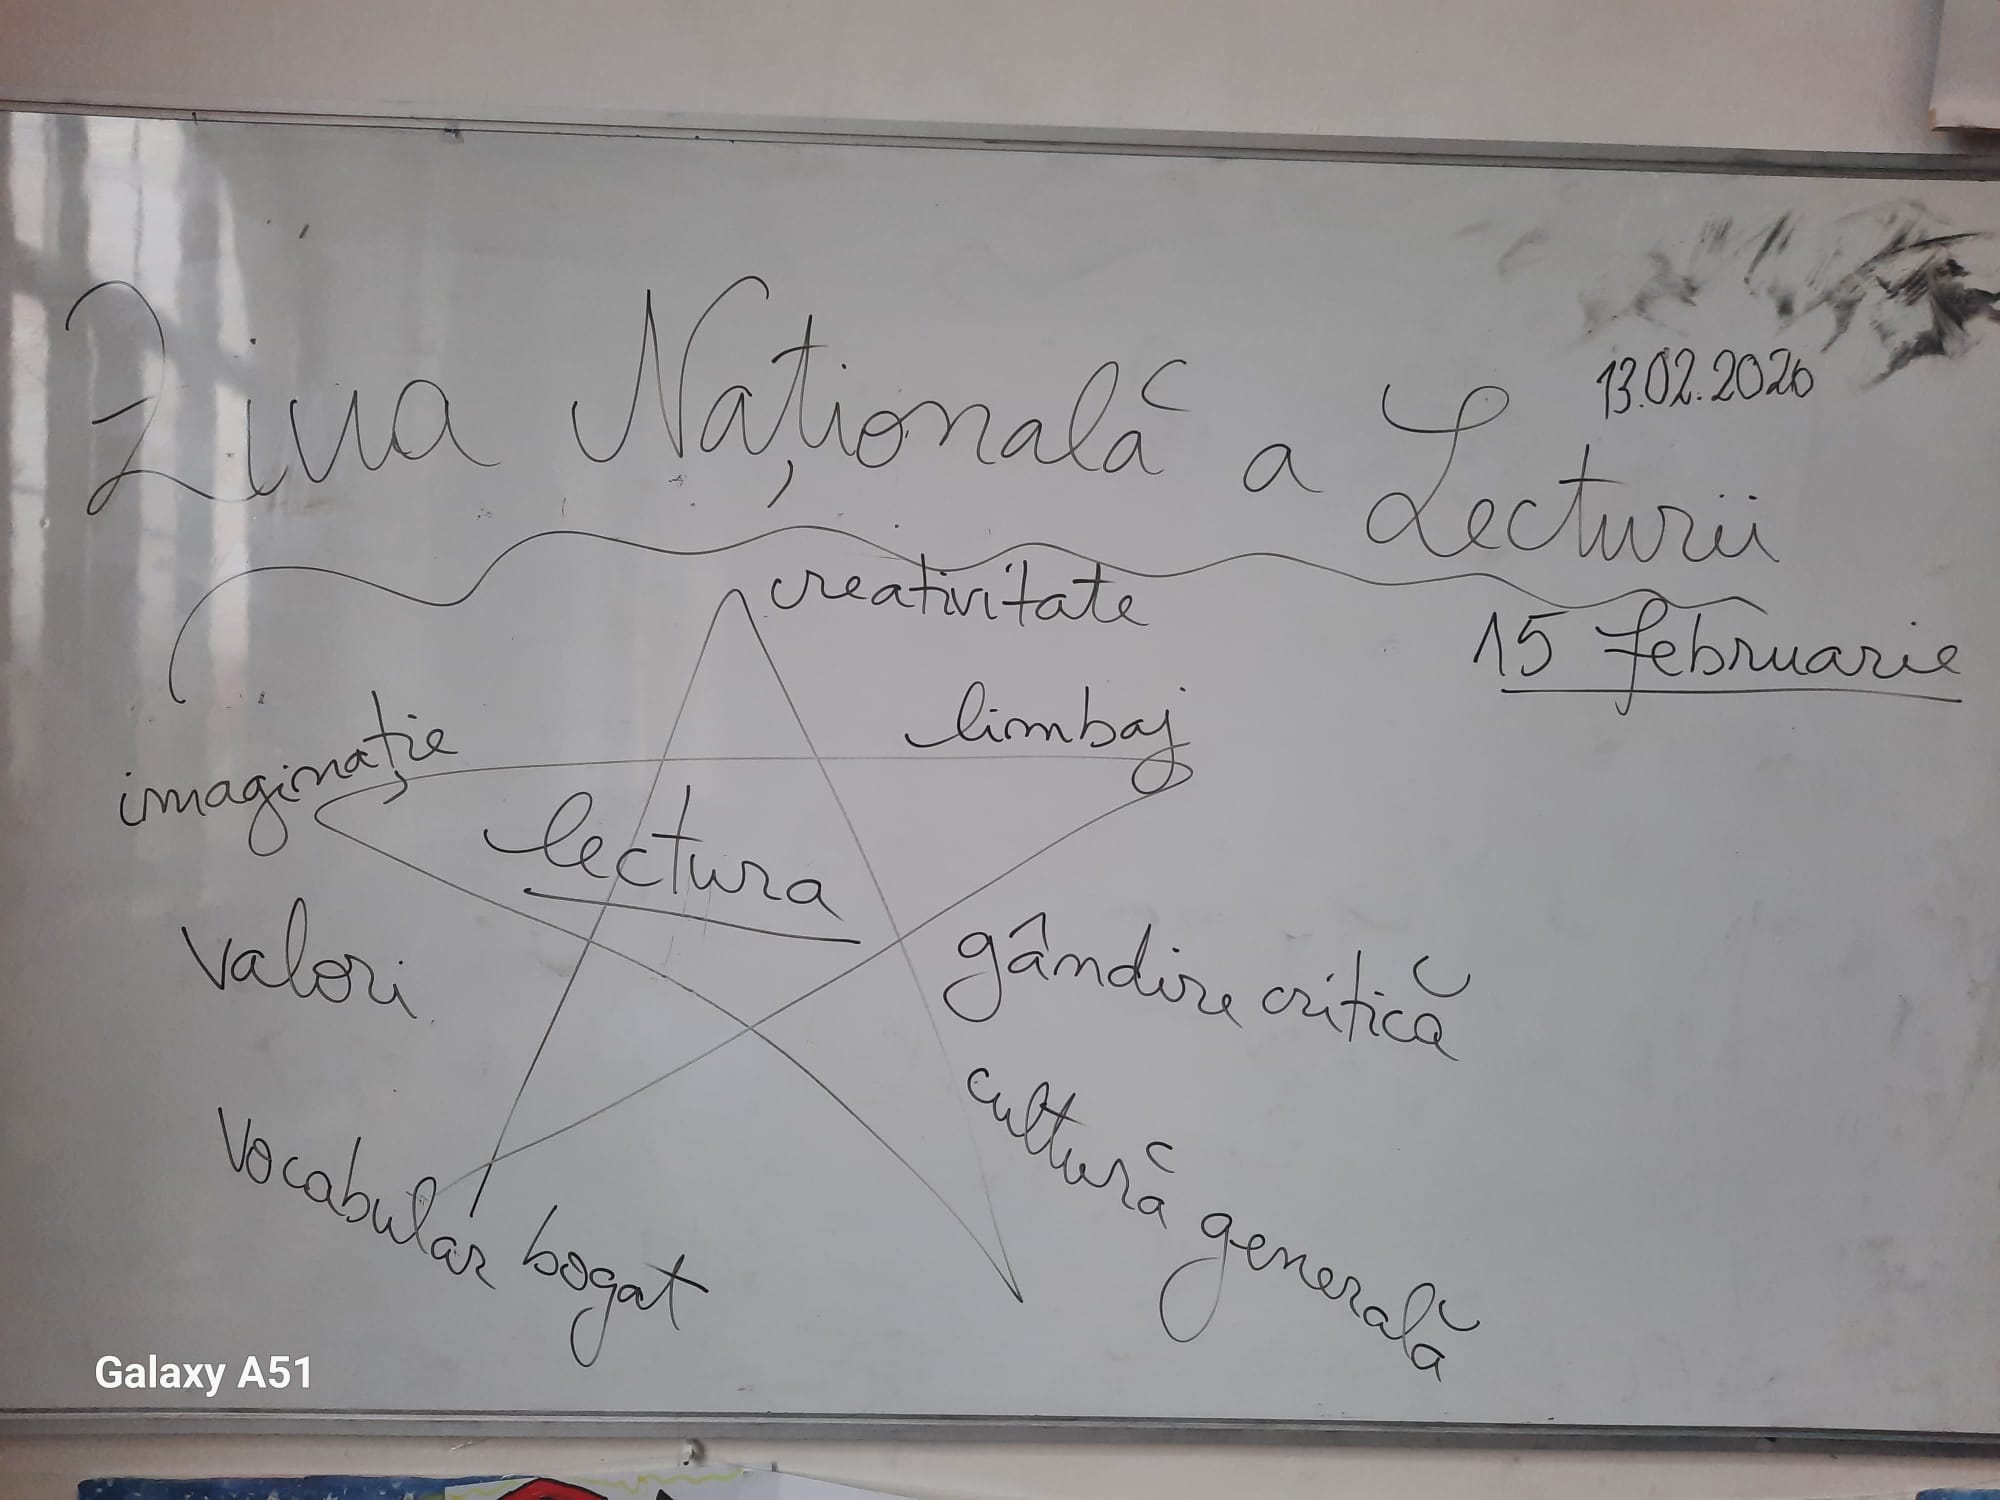 13.02.2026
Ziua Națională a Lecturii
15 februarie
creativitate
limbaj
imaginație
lectura
valori
gândire critică
cultură generală
vocabular bogat
Galaxy A51